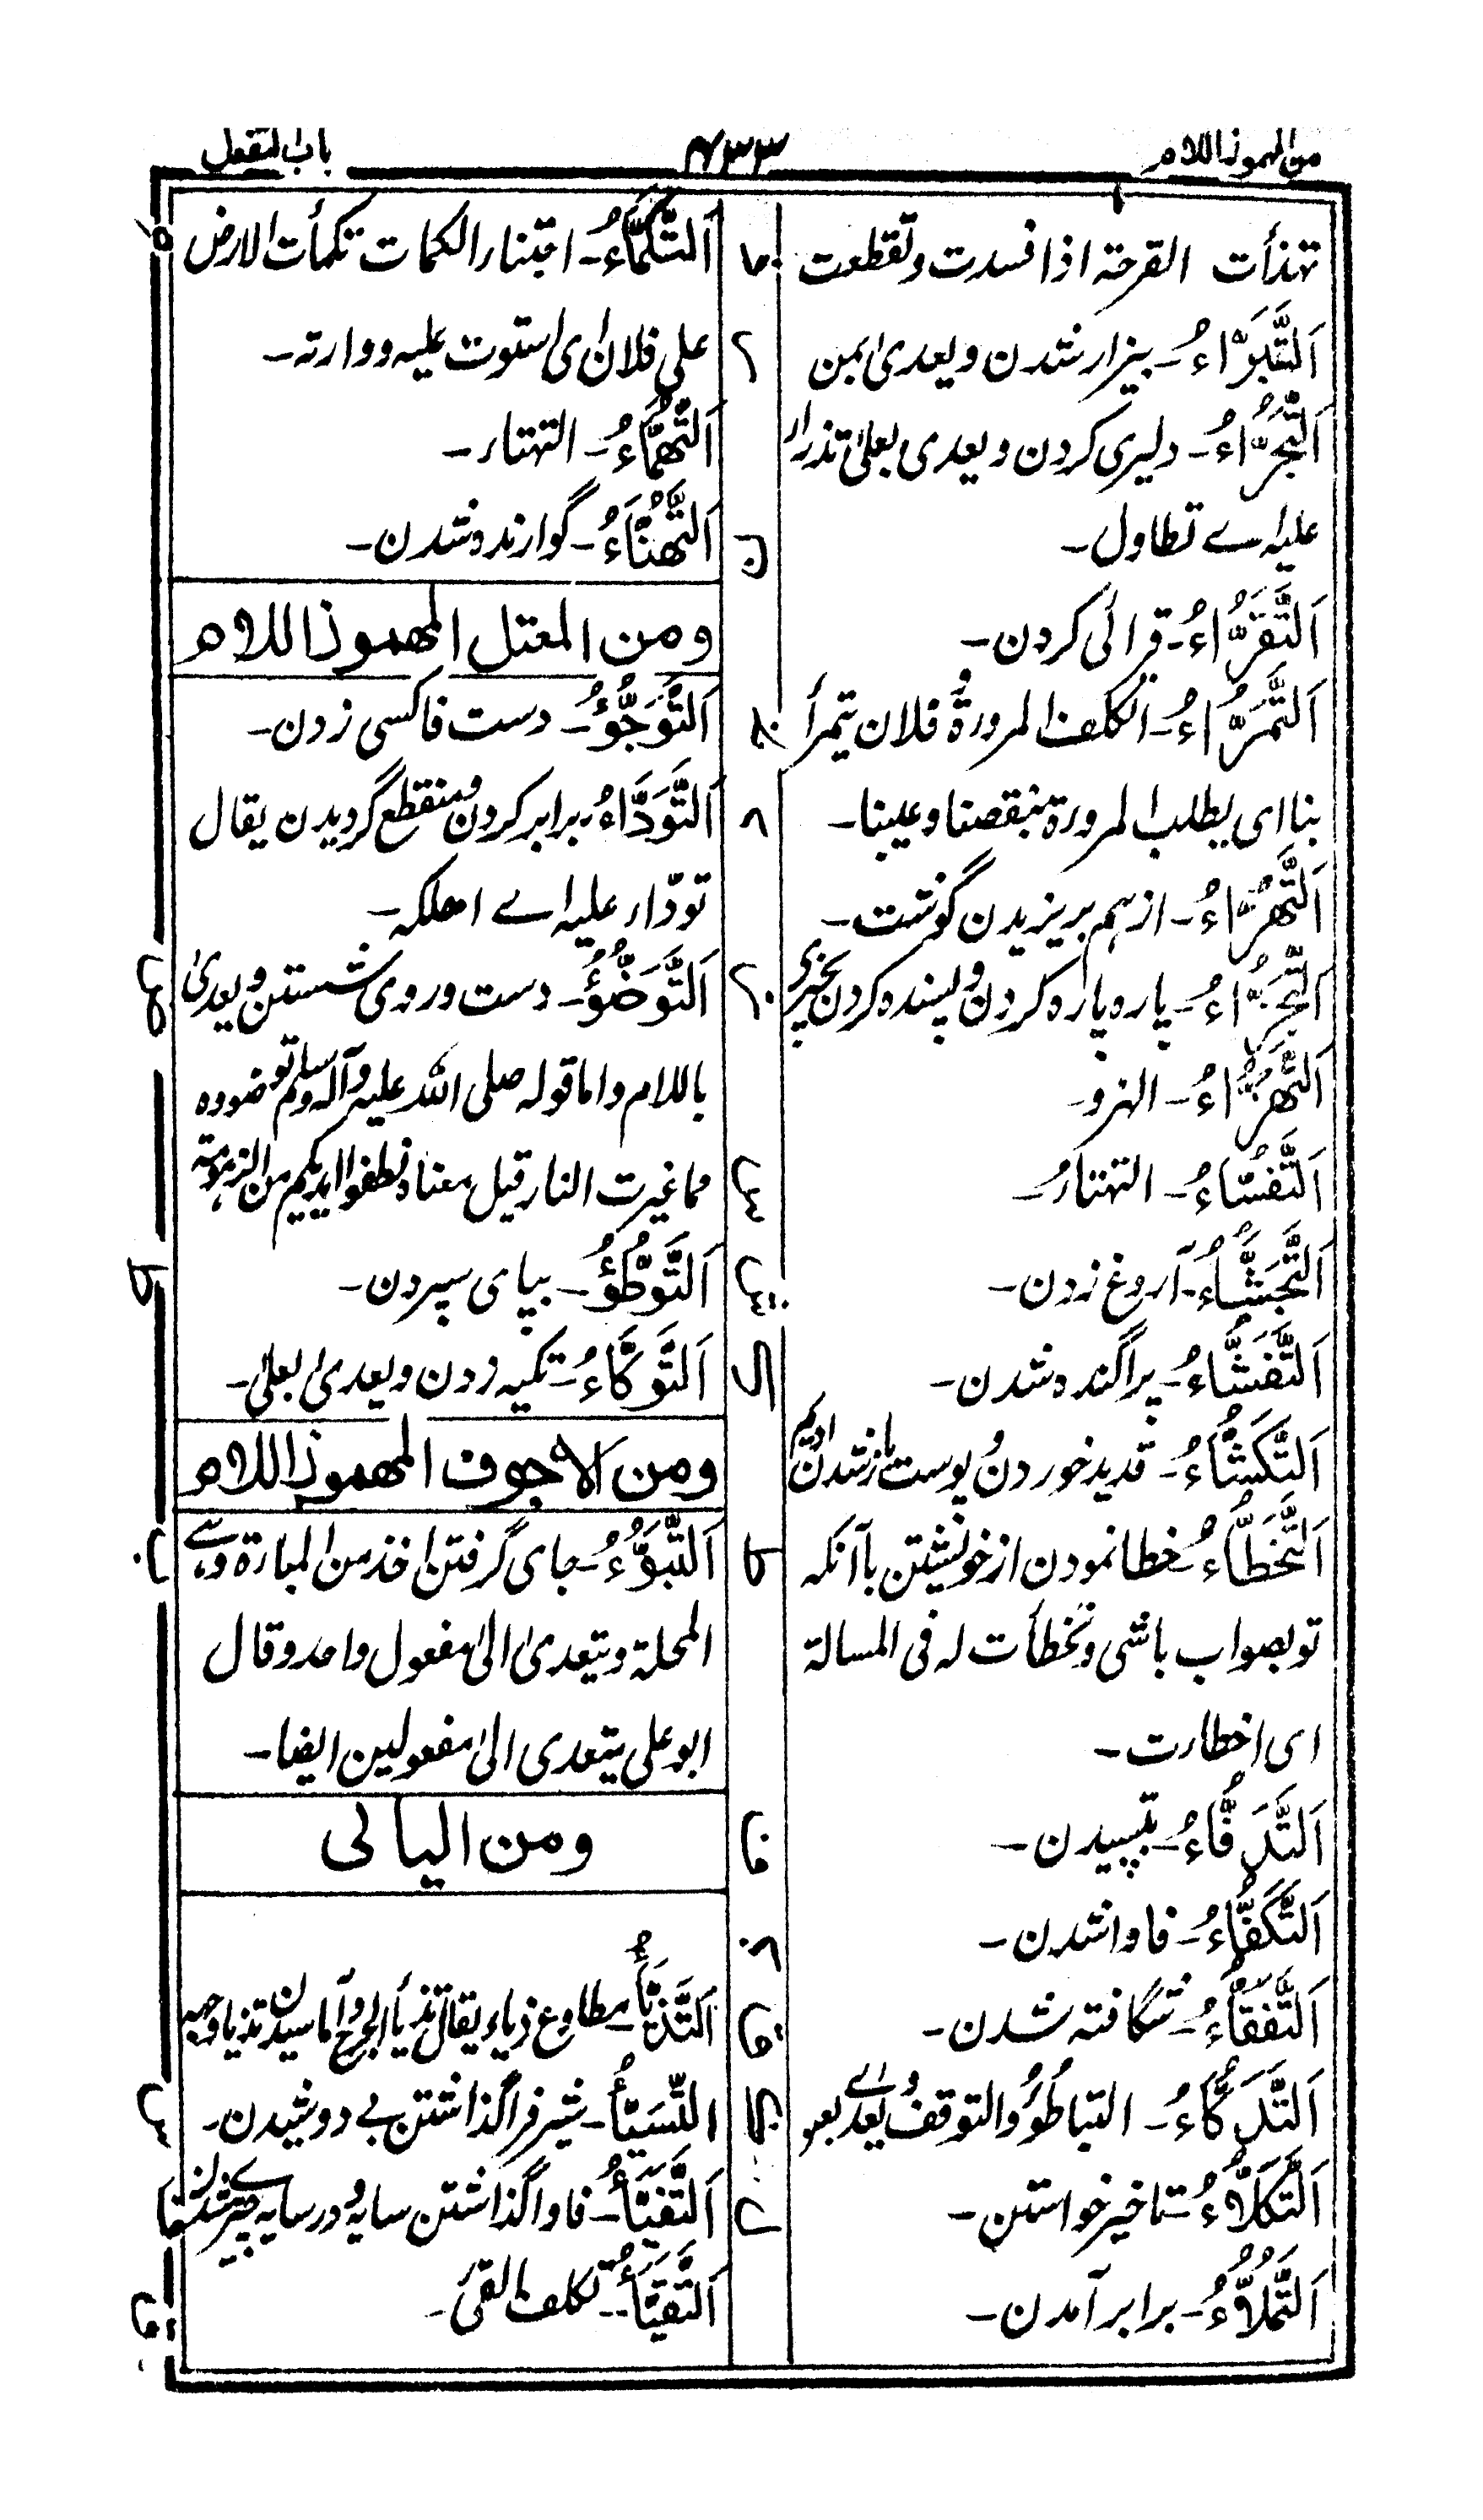 من المهموز اللام
۷۳۳
باب التفعل
تهذأت القرحة اذا فسدت و تقطعت
اَلتَّبَرُّاءُ۔ بیزار شدن و یعدی بمن
اَلتَّجَرُّاءُ۔ دلیری کردن و یعدی بعلی
علیه اے تطاول۔
اَلتَّقَرُّاءُ۔ قرائی کردن۔
اَلتَّمَرُّاءُ۔ المروءة فلان یتمرأ
بنا ای یطلب المروءة بنقصنا و عیبنا۔
اَلتَّهَرُّاءُ۔ از هم بریزیدن گوشت۔
اَلتَّجَزُّاءُ۔ پاره پاره کردن و بسنده کردن بچیزی
اَلتَّهَزُّاءُ۔ الهزو۔
اَلتَّفَسُّاءُ۔ التهتار۔
اَلتَّجَشُّاءُ۔ آروغ زدن۔
اَلتَّفَشُّاءُ۔ پراگنده شدن۔
اَلتَّكَشُّاءُ۔ قدید خوردن و پوست باز شدن ادیم
اَلتَّخَطُّاءُ۔ خطا نمودن از خویشتن با آنکه
تو بصواب باشی و تخطأت له فی المسالة
ای اخطارت۔
اَلتَّدَفُّاءُ۔ تپسیدن۔
اَلتَّكَفُّاءُ۔ فاوا شدن۔
اَلتَّفَقُّاءُ۔ شگافته شدن۔
اَلتَّلَكُّاءُ۔ التباطُؤُ والتوقفُ
اَلتَّكَلُّاءُ۔ تاخیر خواستن۔
اَلتَّمَلُّاءُ۔ برابر آمدن۔
ب
ر
ن
ز
س
ش
ط
ف
ق
ک
ل
اَلتَّكَمُّاءُ۔ اجتناء الكمات تكمأت الارض
علی فلان ای استوت علیه و وارته۔
اَلتَّهَمُّاءُ۔ التهتار۔
اَلتَّهَنُّاءُ۔ گوارنده شدن۔
ومن المعتل المهموز اللام
اَلتَّوَجُّؤُ۔ دست فاکسی زدن۔
اَلتَّوَدُّاءُ برابر کردن و منقطع گردیدن یقال
تودّاء علیه اے اهلکه۔
اَلتَّوَضُّؤُ۔ دست و روی شستن و یعدی
باللام و اما قوله صلی الله علیه وآله وسلم توضووه
مما غیرت النار قیل معناه نظفوا ایدیکم من الزهومة
اَلتَّوَطُّؤُ۔ بپای سپردن۔
اَلتَّوَكُّاءُ۔ تکیه زدن و یعدی بعلی۔
ومن الاجوف المهموز اللام
اَلتَّبَوُّءُ۔ جای گرفتن اخذ من المباءة و هے
المحلة و یتعدی الی مفعول واحد و قال
ابو علی یتعدی الی مفعولین ایضا۔
ومن الیائی
اَلتَّذَيُّأُ۔ مطاوع ذیاء یقال تذیأ الجرح و آماسیدن تذیا وجهه
اَلتَّسَيُّأُ۔ شیر فراگذاشتن بے دوشیدن۔
اَلتَّفَيُّأُ۔ فاوا گذاشتن سایه و در سایه
اَلتَّقَيُّأُ۔ تکلف القئ۔